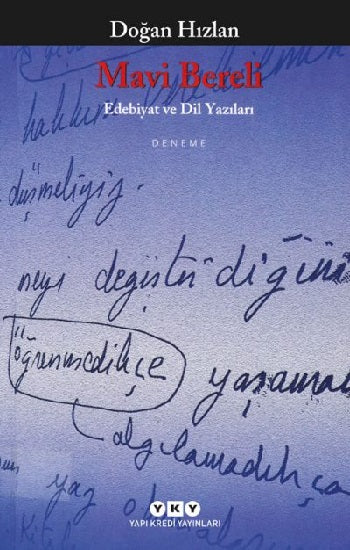 Doğan Hızlan
Mavi Bereli
Edebiyat ve Dil Yazıları
DENEME
hakkın
düşmeliyiz.
neyi değiştirdiğini
öğrenmedikçe
algılamadıkça
yaz
YKY
YAPI KREDİ YAYINLARI